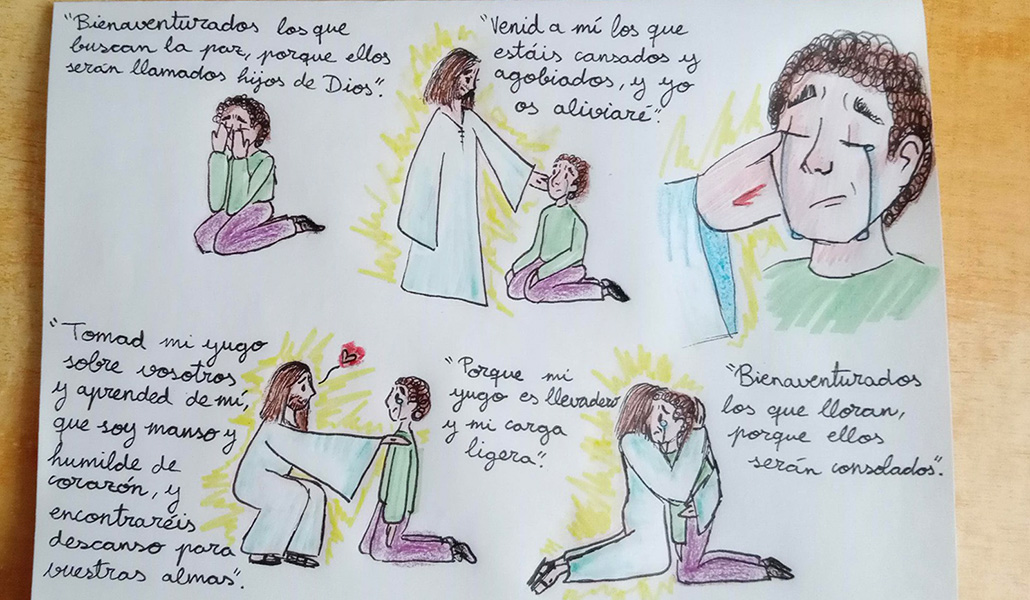 "Bienaventurados los que
buscan la paz, porque ellos
serán llamados hijos de Dios".
"Venid a mí los que
estáis cansados y
agobiados, y yo
os aliviaré".
"Tomad mi yugo
sobre vosotros
y aprended de mí,
que soy manso y
humilde de
corazón, y
encontraréis
descanso para
vuestras almas".
"Porque mi
yugo es llevadero
y mi carga
ligera".
"Bienaventurados
los que lloran,
porque ellos
serán consolados".